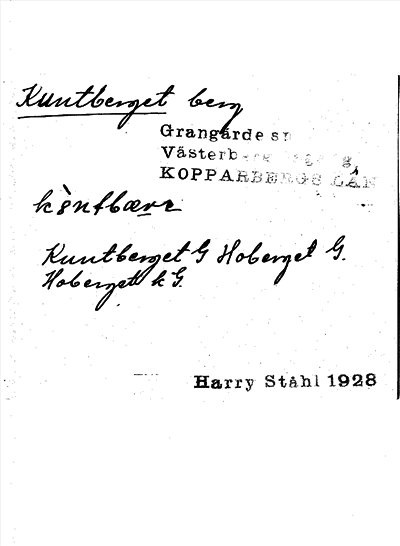 Kuntberget berg
Grangärde sn
KOPPARBERGS LÄN
Kuntberget G Hoberget G.
Hoberget k G.
Harry Ståhl 1928